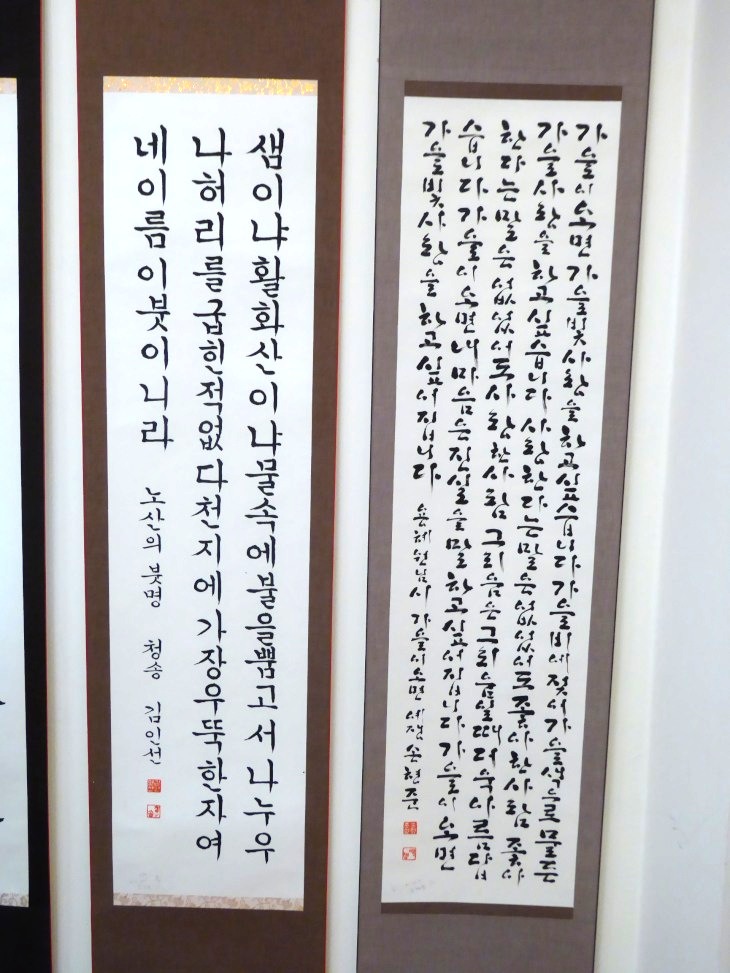 샘이냐활화산이냐물속에불을뿜고서나누우
나허리를굽힌적없다천지에가장우뚝한자여
네이름이붓이니라 노산의 붓명 청송 김인선
가을이오면 가을빛사랑을하고싶습니다 가을비에젖어가을색으로물든
가을사랑을하고싶습니다 사랑한다는말은없었어도좋아한사람 좋아
한다는말은없었어도사랑한사람 그리움은그리움일때더욱아름답
습니다 가을이오면내마음은진실을말하고싶어집니다 가을이오면
가을빛사랑을하고싶어집니다 용혜원님시 가을이오면 손현준